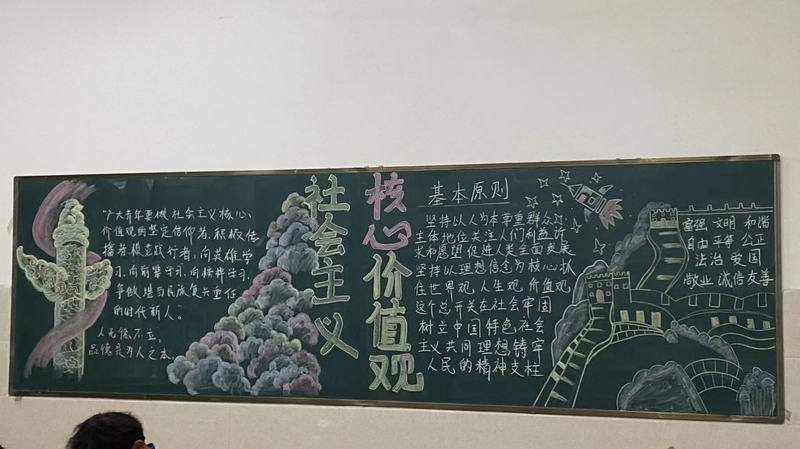 "广大青年要做社会主义核心
价值观的坚定信仰者、积极传
播者、模范践行者，向英雄学
习、向前辈学习、向榜样学习，
争做堪当民族复兴重任
的时代新人。
人无德不立，
品德是为人之本。
社会主义
核心价值观
基本原则
坚持以人为本尊重群众
主体地位关注人们利益诉
求和愿望促进人类全面发展
坚持以理想信念为核心抓
住世界观、人生观、价值观
这个总开关在社会牢固
树立中国特色社会
主义共同理想铸牢
人民的精神支柱
富强 文明 和谐
自由 平等 公正
法治 爱国
敬业 诚信 友善